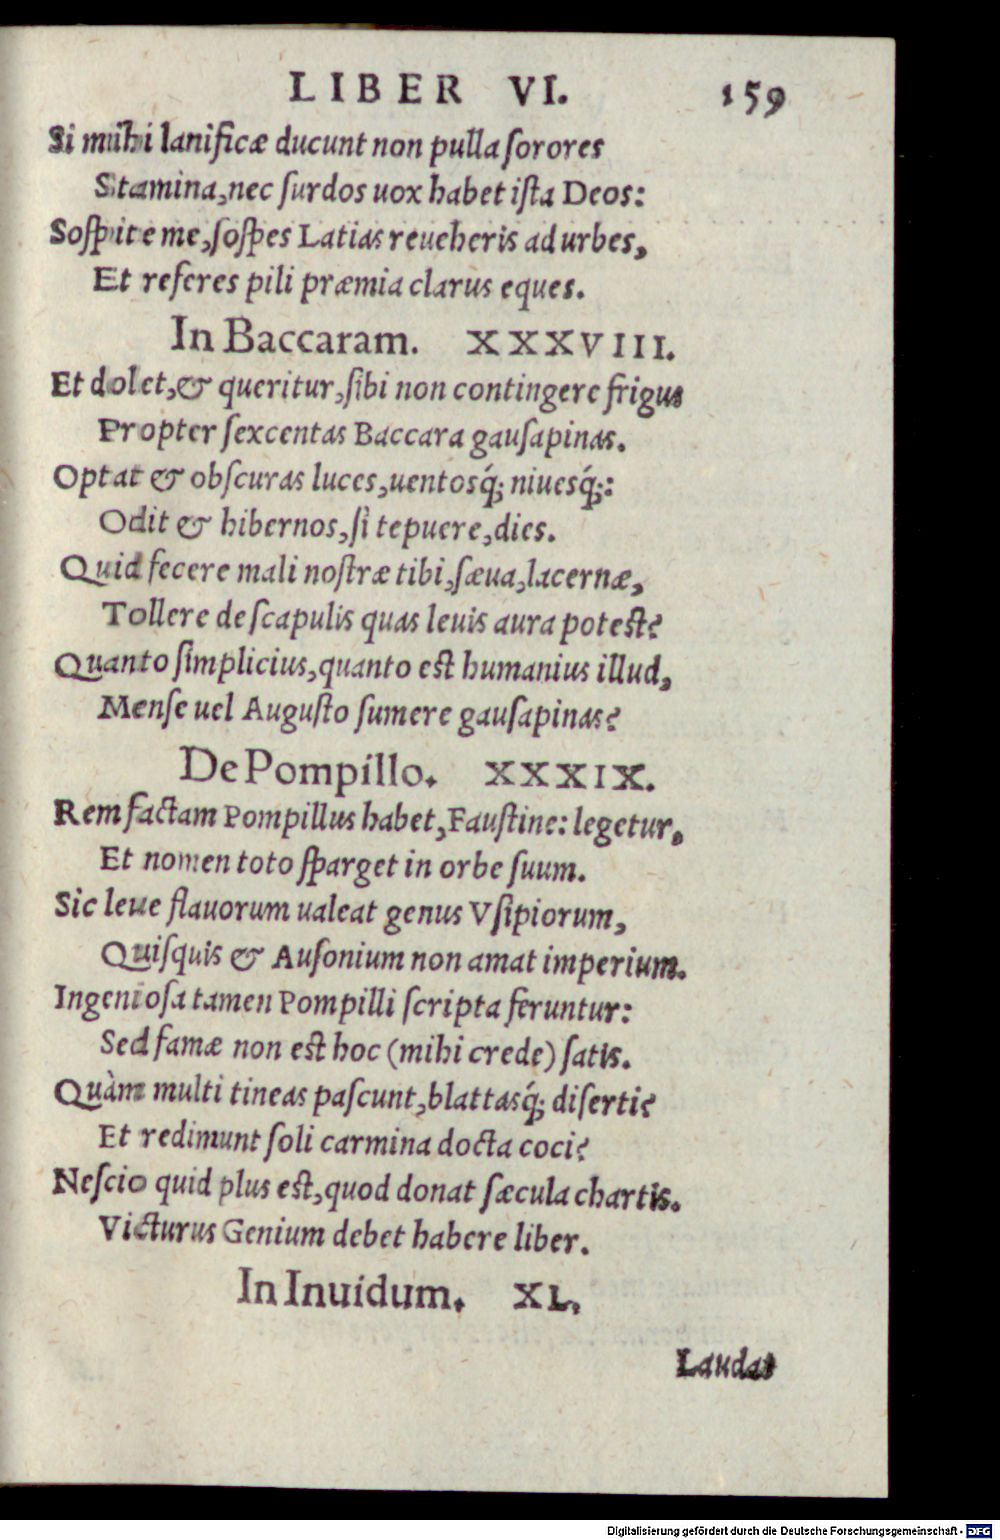 LIBER VI. 159
Si mihi lanificæ ducunt non pulla ſorores
Stamina, nec ſurdos uox habet iſta Deos:
Soſpite me, ſoſpes Latias reueheris ad urbes,
Et referes pili præmia clarus eques.
In Baccaram. XXXVIII.
Et dolet, & queritur, ſibi non contingere frigus
Propter ſexcentas Baccara gauſapinas.
Optat & obſcuras luces, uentosq́; niuesq́;:
Odit & hibernos, ſi tepuere, dies.
Quid fecere mali noſtræ tibi, ſæua, lacernæ,
Tollere de ſcapulis quas leuis aura poteſt?
Quanto ſimplicius, quanto eſt humanius illud,
Menſe uel Auguſto ſumere gauſapinas?
De Pompillo. XXXIX.
Rem factam Pompillus habet, Fauſtine: legetur,
Et nomen toto ſparget in orbe ſuum.
Sic leue flauorum ualeat genus Vſipiorum,
Quiſquis & Auſonium non amat imperium.
Ingenioſa tamen Pompilli ſcripta feruntur:
Sed famæ non eſt hoc (mihi crede) ſatis.
Quàm multi tineas paſcunt, blattasq́; diſerti?
Et redimunt ſoli carmina docta coci?
Neſcio quid plus eſt, quod donat ſæcula chartis.
Victurus Genium debet habere liber.
In Inuidum. XL.
Laudat
Digitalisierung gefördert durch die Deutsche Forschungsgemeinschaft - DFG